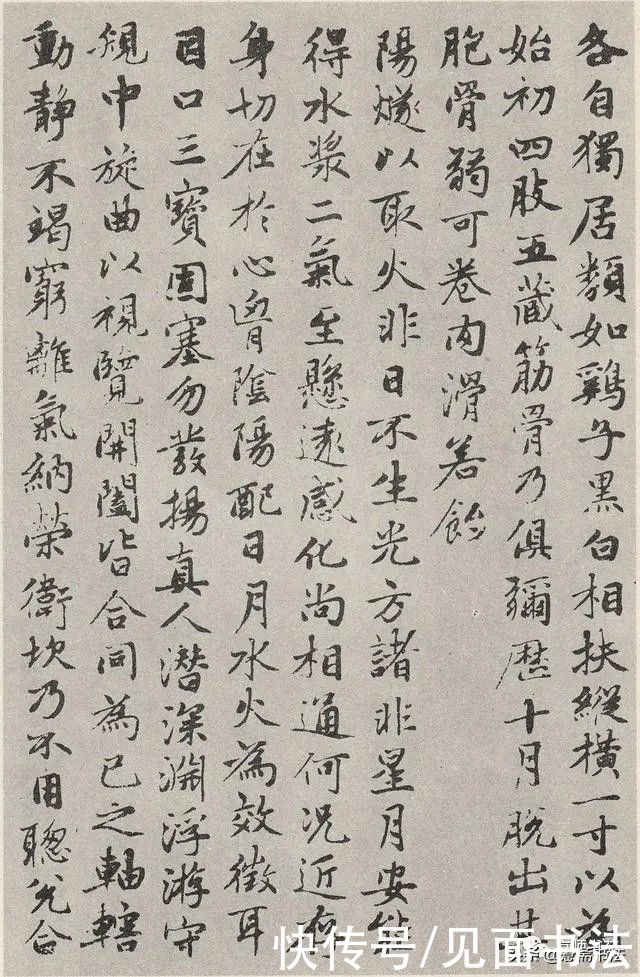 各自獨居類如鷄子黑白相扶縱橫一寸以為
始初四肢五藏筋骨乃俱彌歷十月脫出其
胞骨弱可卷肉滑若飴
陽燧以取火非日不生光方諸非星月安能
得水漿二氣至懸遠感化尚相通何況近存
身切在於心胷陰陽配日月水火為效徵耳
目口三寶固塞勿發揚真人潛深淵浮游守
規中旋曲以視覽開闔皆合同為己之軸轄
動靜不竭窮離氣納榮衛坎乃不用聰兌合
快传号/见面书法